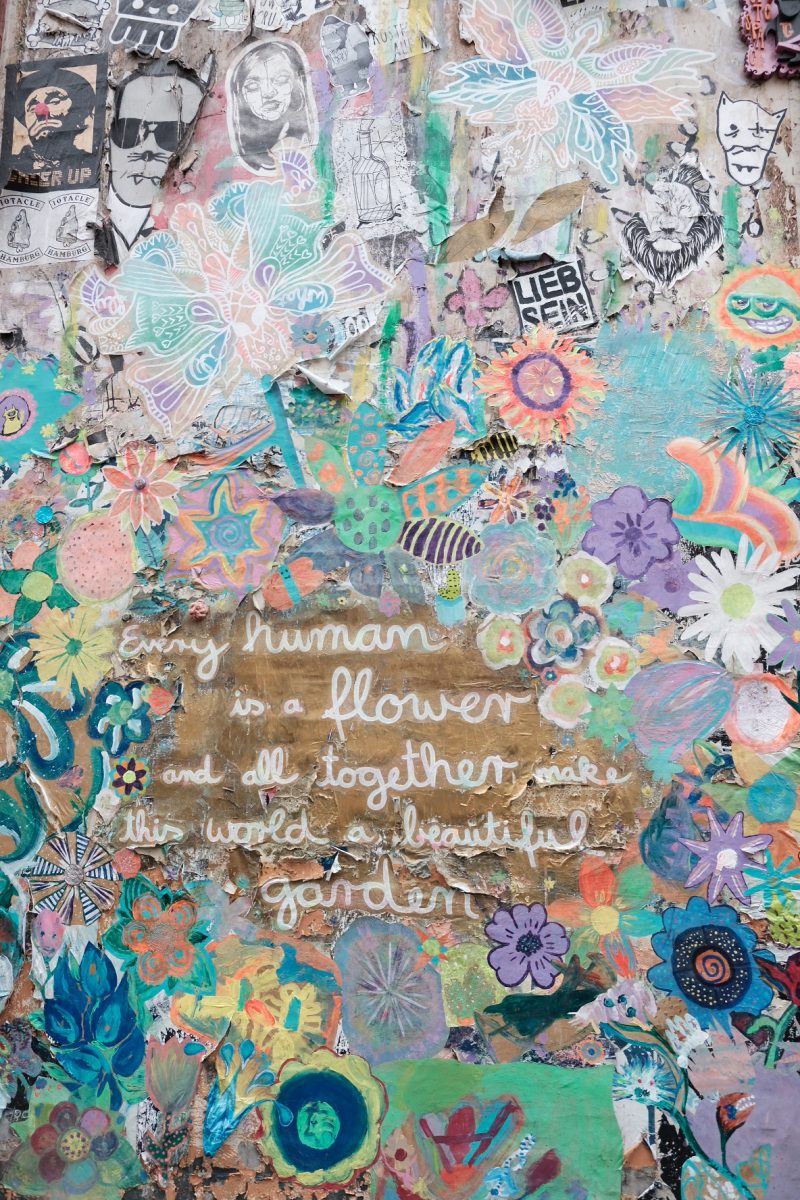 CHEER UP
10TACLE
10TACLE
HAMBURG
HAMBURG
LIEB
SEIN
Every human
is a flower
and all together make
this world a beautiful
garden